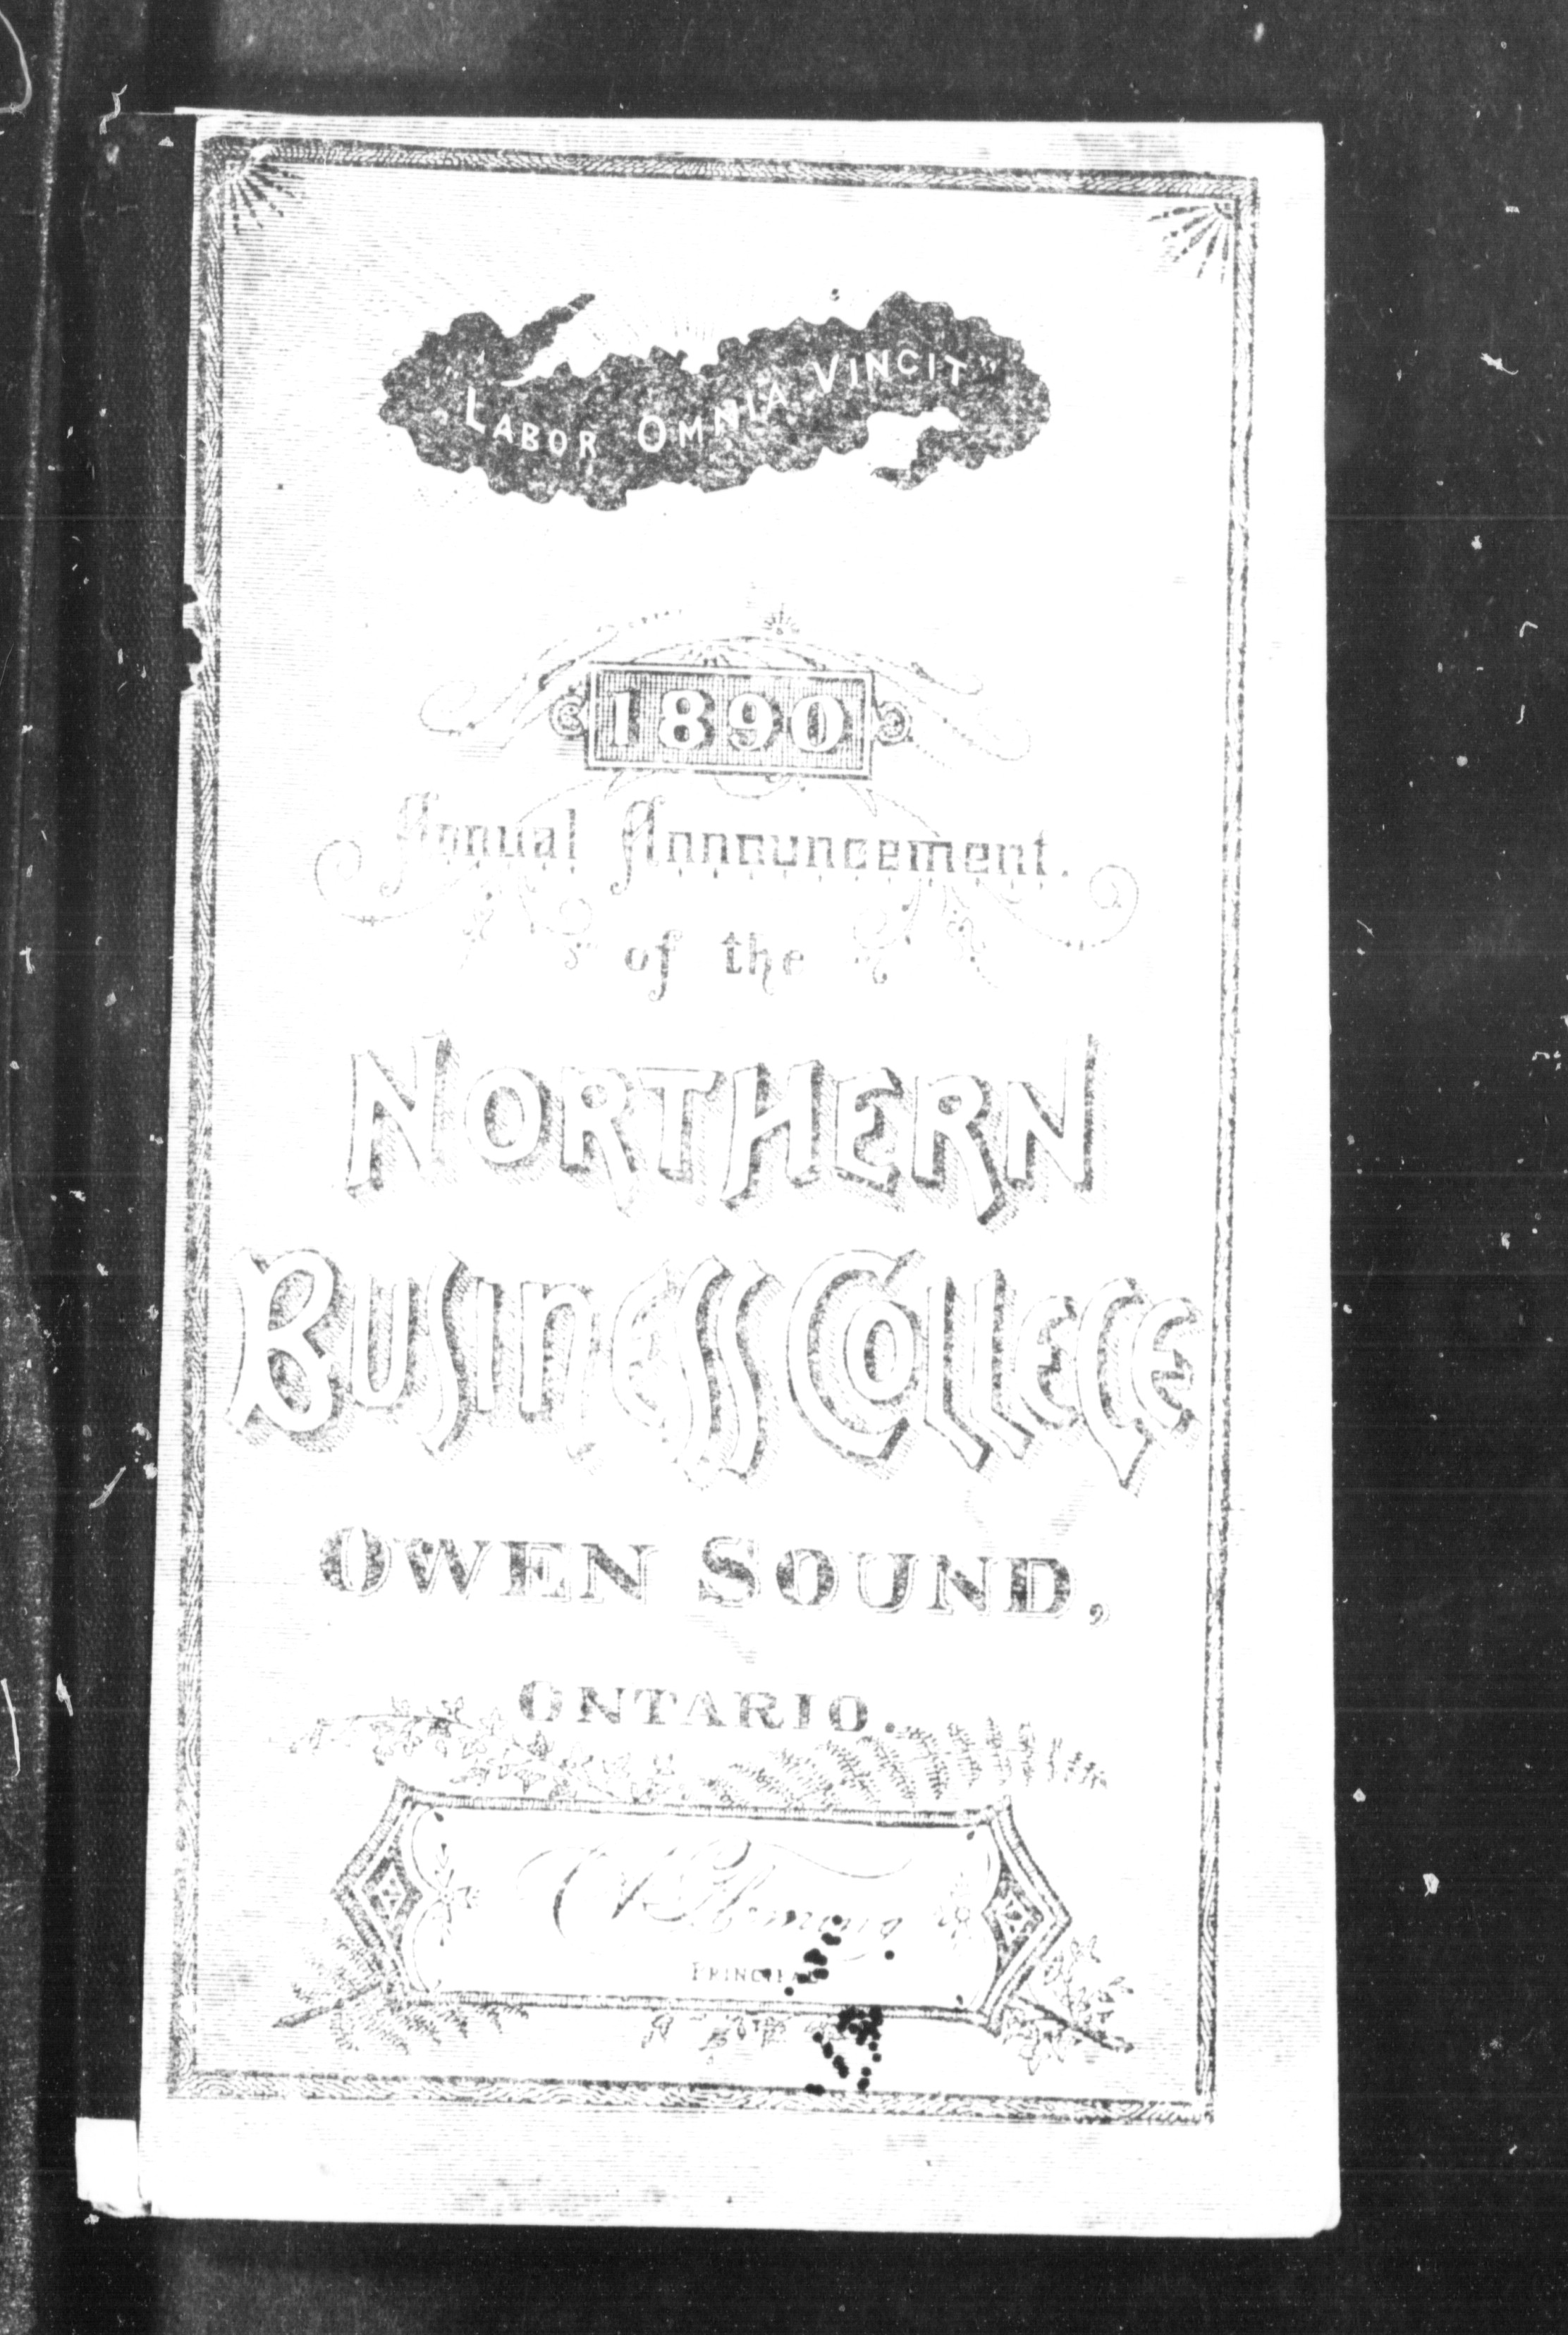 "LABOR OMNIA VINCIT"
1890
Annual Announcement.
of the
NORTHERN
BUSINESS COLLEGE
OWEN SOUND,
ONTARIO.
C A Fleming
PRINCIPAL